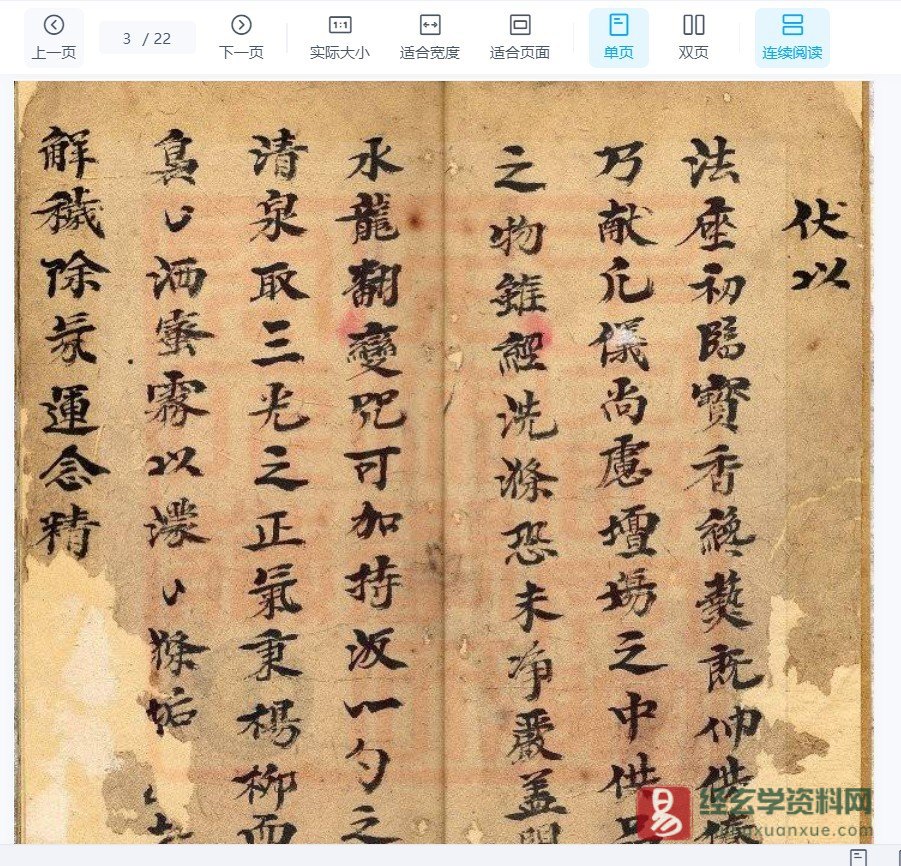 上一页
3 / 22
下一页
实际大小
适合宽度
适合页面
单页
双页
连续阅读
伏以
法座初臨寳香纔爇既伸供
乃献凢儀尚慮壇塲之中供
之物雖經洗滌恐未净嚴盖聞
水龍翻變咒可加持汲一勺之
清泉取三光之正氣秉楊柳而
洒靈霧以濃㇏滌垢
解穢除氛運念精
易
经玄学资料网
xuanxue.com